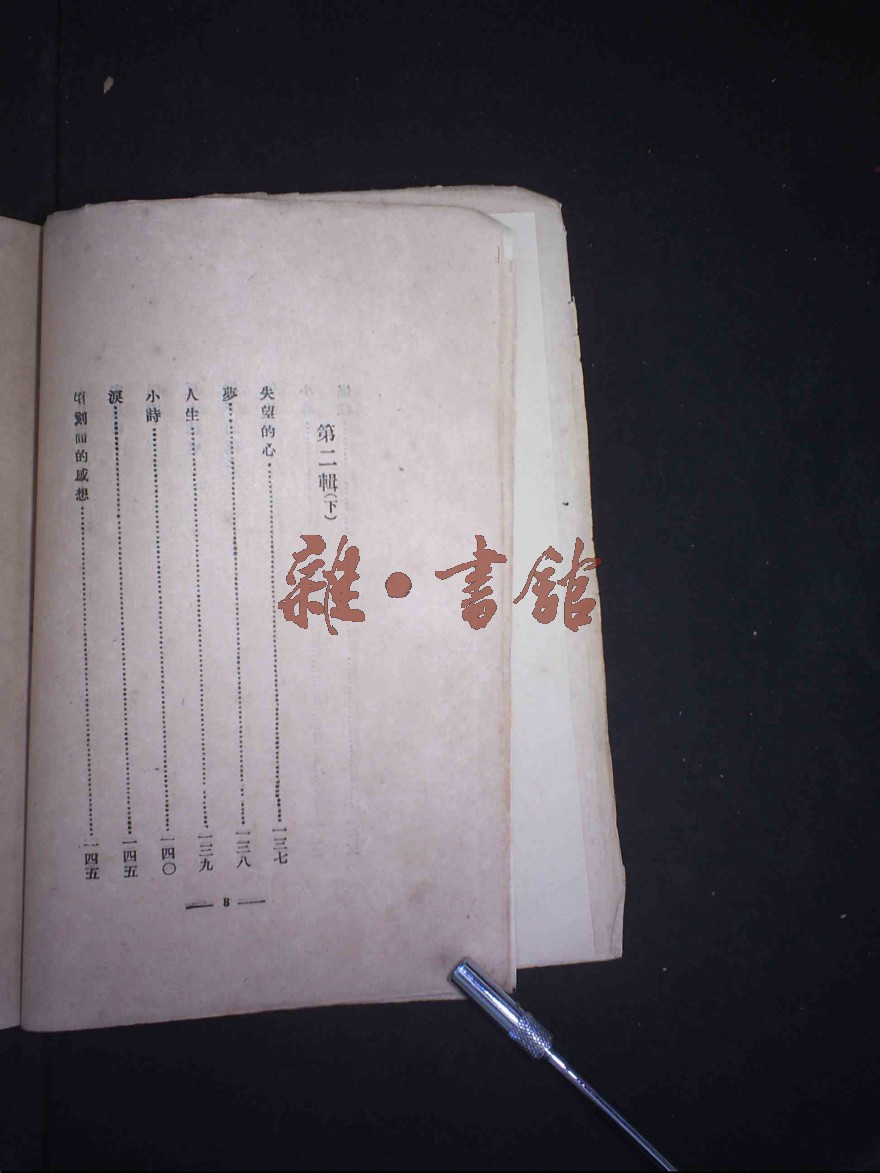 第二輯(下)
失望的心……一三七
夢……一三八
人生……一三九
小詩……一四〇
淚……一四五
頃刻間的感想……一四五
— 8 —
雜•書館